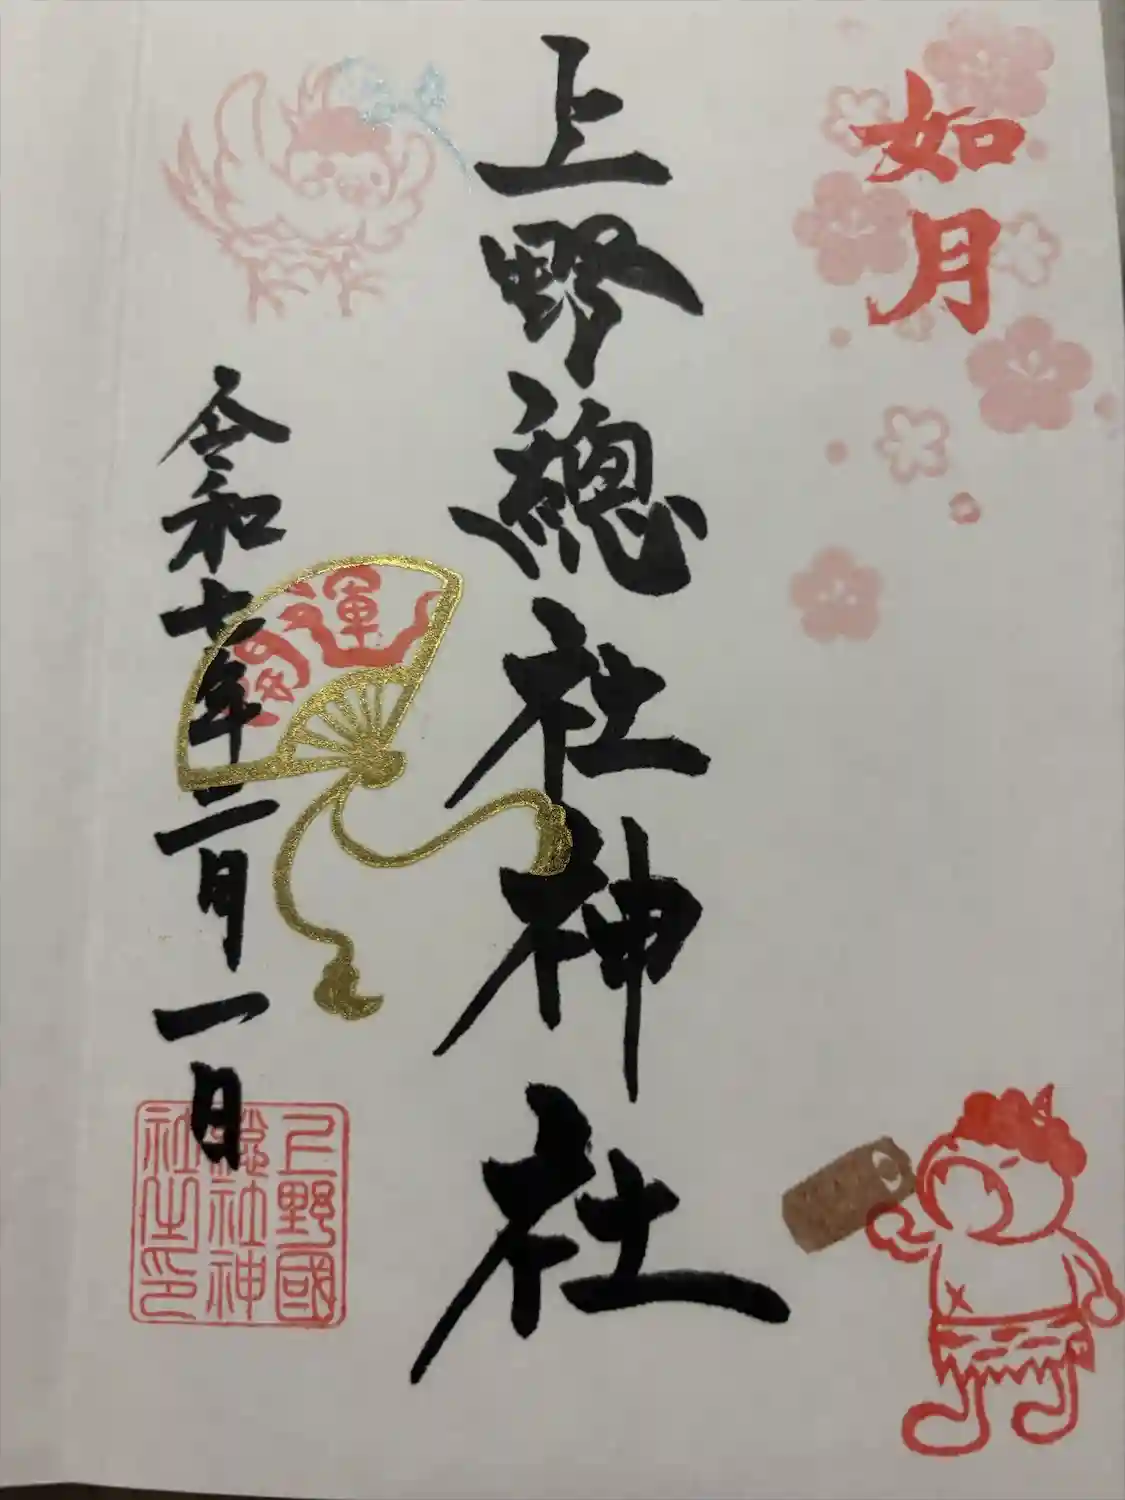 如月
上野總社神社
開運
令和七年二月一日
上野國
總社神
社之印